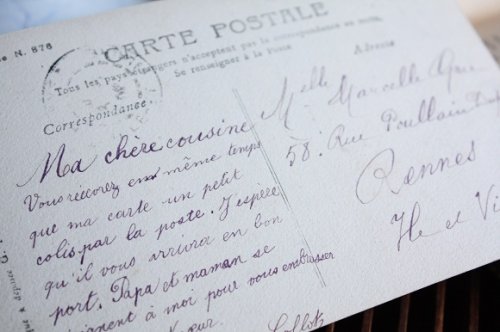 N. 876
CARTE POSTALE
Tous les pays étrangers n'acceptent pas la correspondance au recto,
Se renseigner à la Poste
Correspondance
Adresse
Ma chère cousine
Vous recevrez en même temps
que ma carte un petit
colis par la poste. J'espère
qu'il vous arrivra en bon
port. Papa et maman se
à moi pour vous embrasser
Melle Marcelle
58. Rue Poullain
Rennes
Ile et Vi